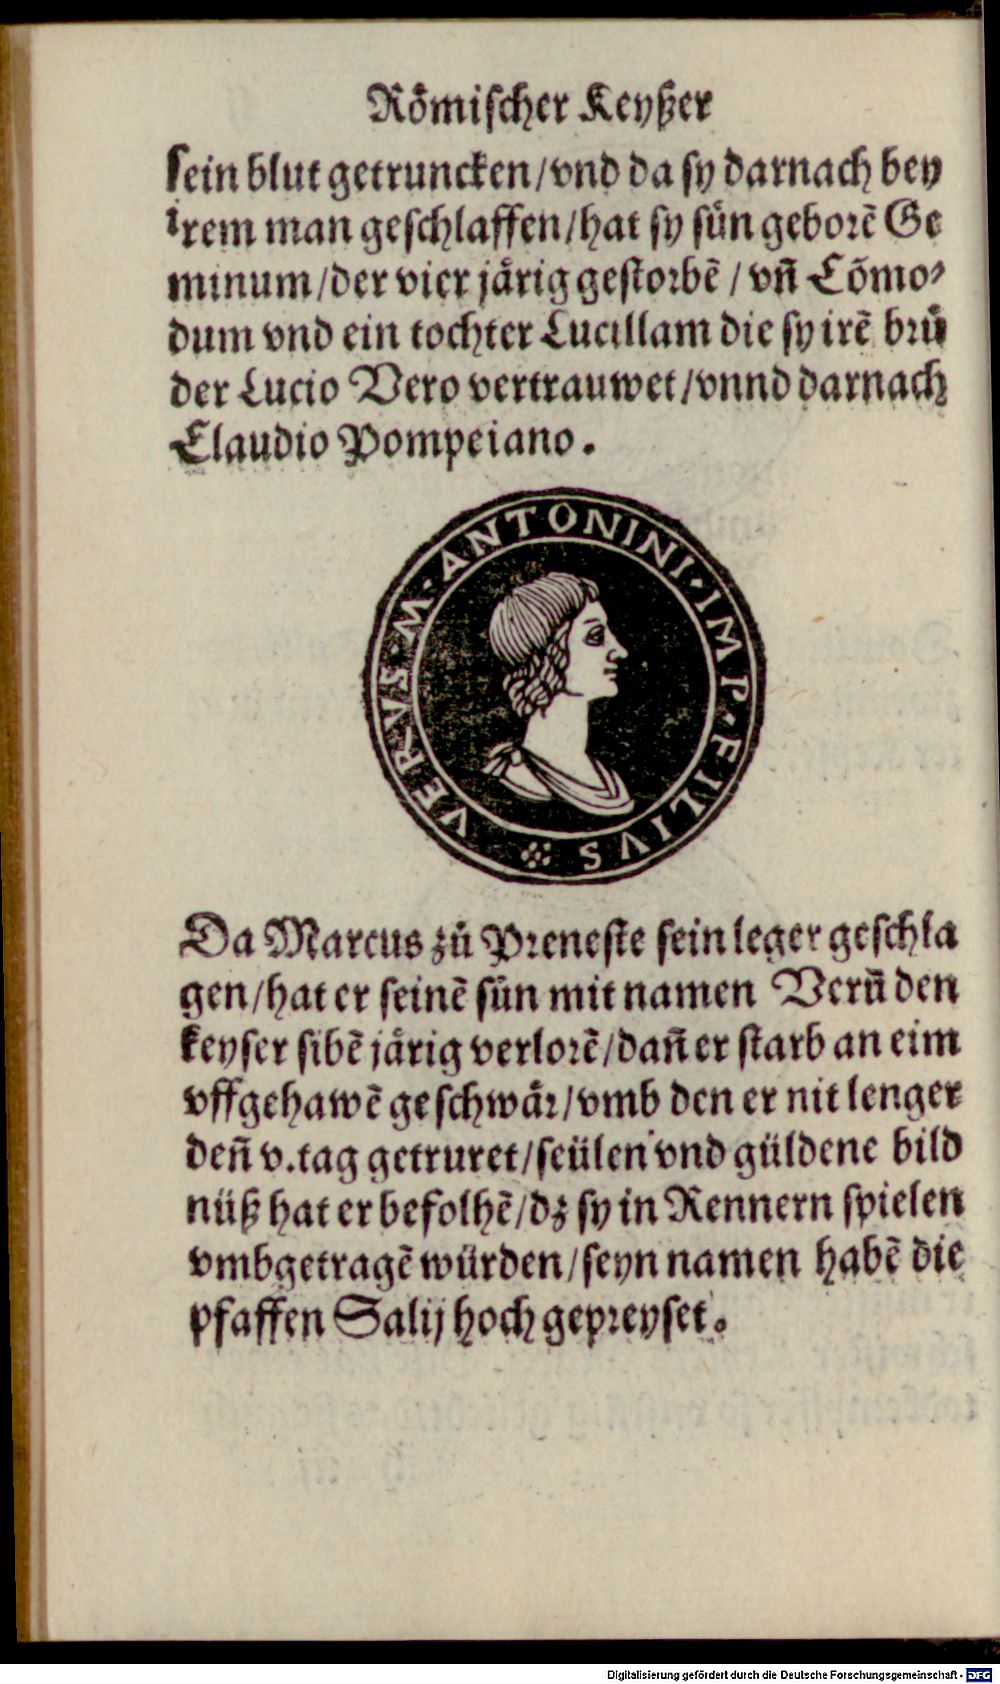 Roͤmischer Keyßer
sein blut getruncken/vnd da sy darnach bey
irem man geschlaffen/hat sy sün geborē Ge
minum/der vier jaͤrig gestorbē / vn̄ Cōmo⸗
dum vnd ein tochter Lucillam die sy irē bruͤ
der Lucio Vero vertrauwet/vnnd darnach
Claudio Pompeiano.
VERVS · M · ANTONINI · IMP · FILIVS
Da Marcus zuͦ Preneste sein leger geschla
gen/hat er seinē sün mit namen Verū den
keyser sibē jaͤrig verlorē/dan̄ er starb an eim
vffgehawē geschwaͤr/vmb den er nit lenger
den̄ v.tag getruret/seülen vnd güldene bild
nüß hat er befolhē/dz sy in Rennern spielen
vmbgetragē würden/seyn namen habē die
pfaffen Salij hoch gepreyset.
Digitalisierung gefördert durch die Deutsche Forschungsgemeinschaft - DFG